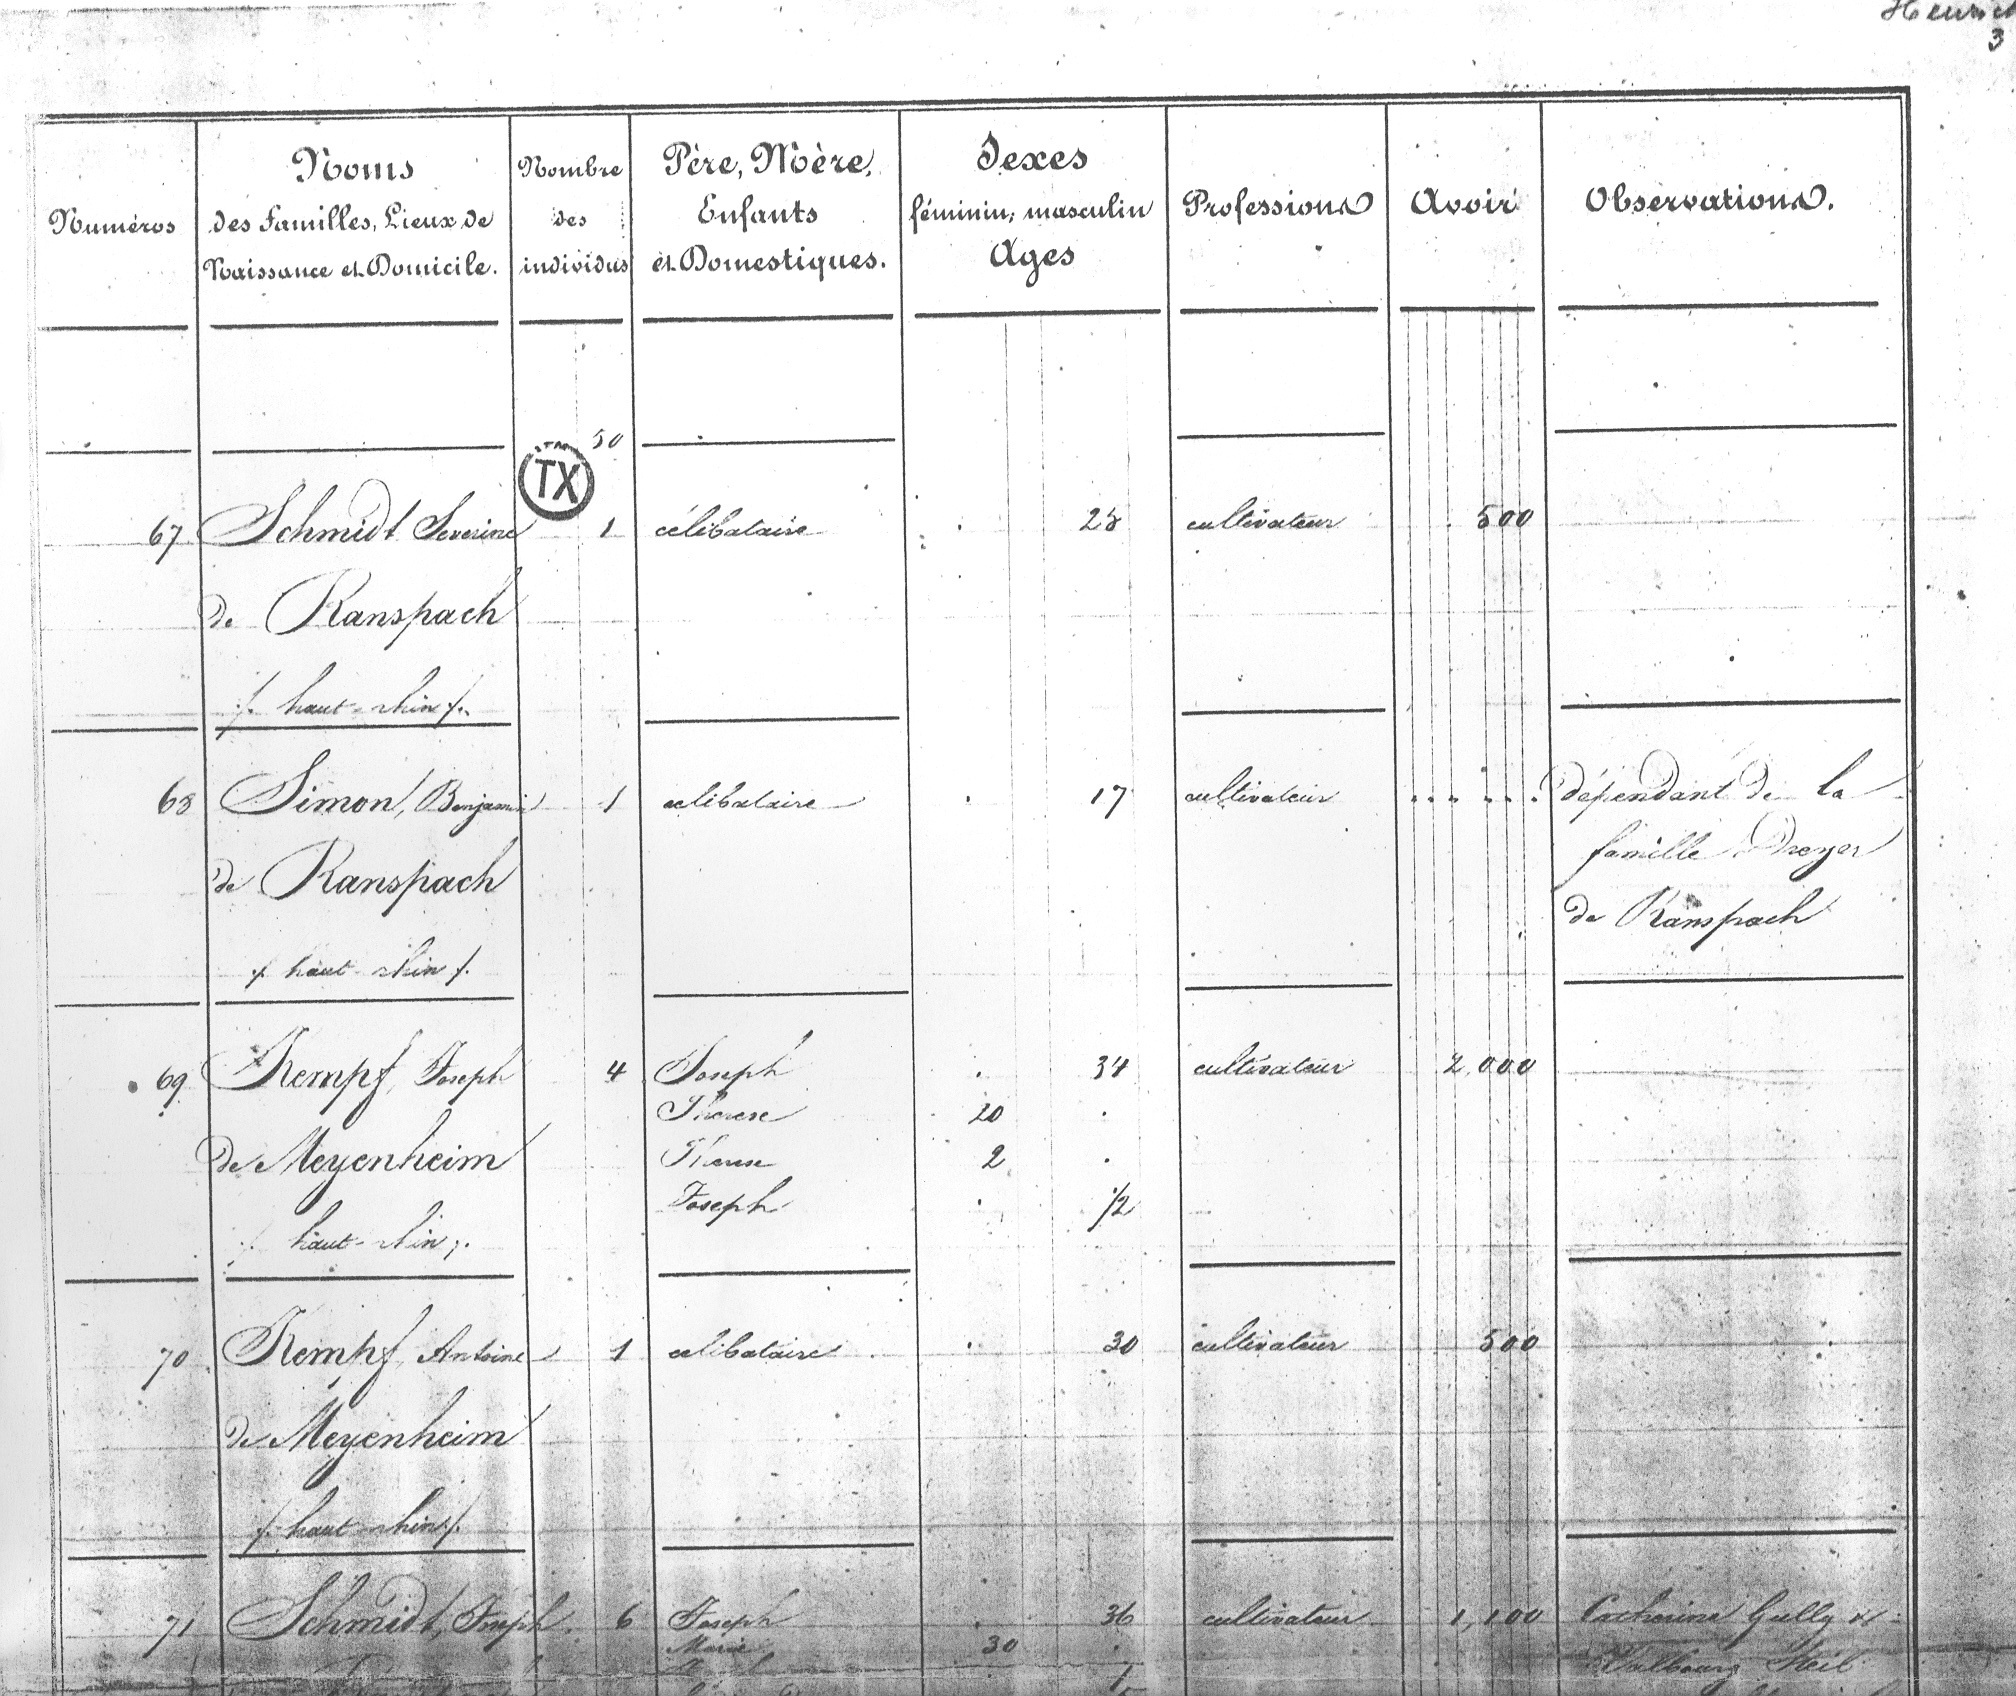 3
Numéros
Noms
des Familles, Lieux de
Naissance et Domicile.
Nombre
des
individus
Père, Mère,
Enfants
et Domestiques.
Sexes
féminin, masculin
Ages
Professions
Avoir
Observations.
50
TX
67 Schmidt Severine 1 célibataire . 25 cultivateur 500
de Ranspach
/. haut-rhin /.
68 Simon, Benjamin 1 celibataire . 17 cultivateur ...... dépendant de la
famille Dreyer
de Ranspach
de Ranspach
/. haut-rhin /.
69 Kempf, Joseph 4 Joseph . 34 cultivateur 2,000
Therese 20 .
de Meyenheim Therese 2 .
Joseph . 1/2
/. haut-rhin /.
70 Kempf, Antoine 1 celibataire . 30 cultivateur 500
de Meyenheim
/. haut-rhin /.
71 Schmidt, Joseph 6 Joseph . 36 cultivateur 1,100 Catherine Gully &
Marie 30 . Valbourg